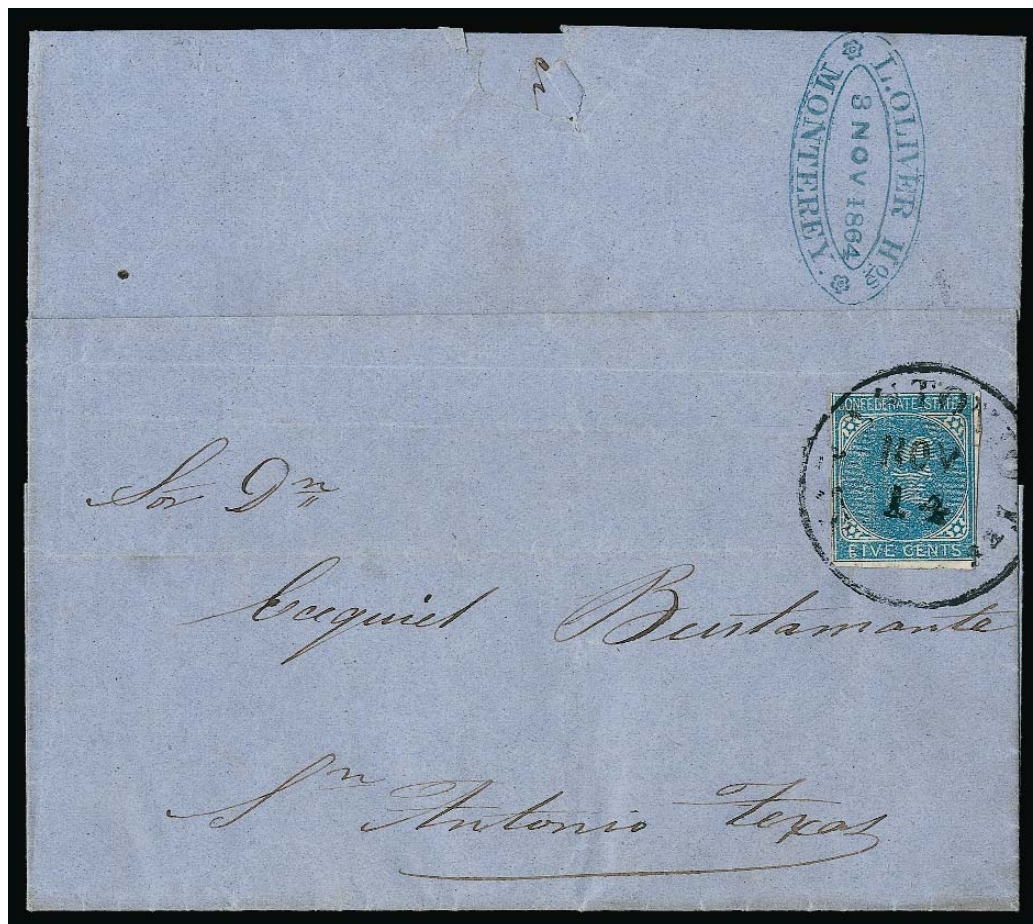 en
L. OLIVER Hos
8 NOV 1864
MONTEREY.
CONFEDERATE STATES
ANTONIO
NOV
14
FIVE CENTS
Sor Dn
Exequiel Bustamante
Sn Antonio Texas